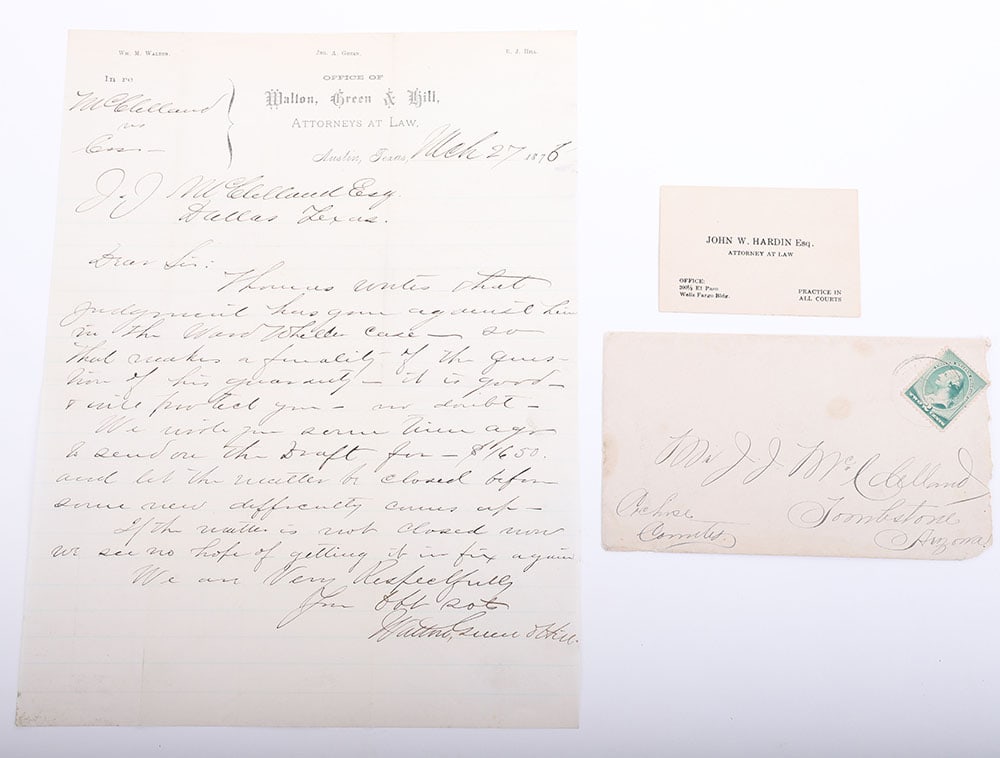 Wm. M. Walton. Jno. A. Green. E. J. Hill.
In re
McClelland
vs
OFFICE OF
Walton, Green & Hill,
ATTORNEYS AT LAW,
Austin, Texas, Mch 27 1876
J. J. McClelland Esq.
Dallas Texas.
Dear Sir:
Thomas writes that
judgment has gone against him
in the Ward Wheeler case — so
that makes a finality of the ques-
tion of his guaranty — it is good —
& will protect you — no doubt —
We wrote you some time ago
to send on the Draft for — $1650.
and let the matter be closed before
some new difficulty comes up —
If the matter is not closed now
we see no hope of getting it in fix again
We are Very Respectfully
Your Obt
Walton, Green & Hill
JOHN W. HARDIN Esq.
ATTORNEY AT LAW
OFFICE:
200½ El Paso
Wells Fargo Bldg.
PRACTICE IN
ALL COURTS
Mr J. J. McClelland
Tombstone
Arizona
Cochise